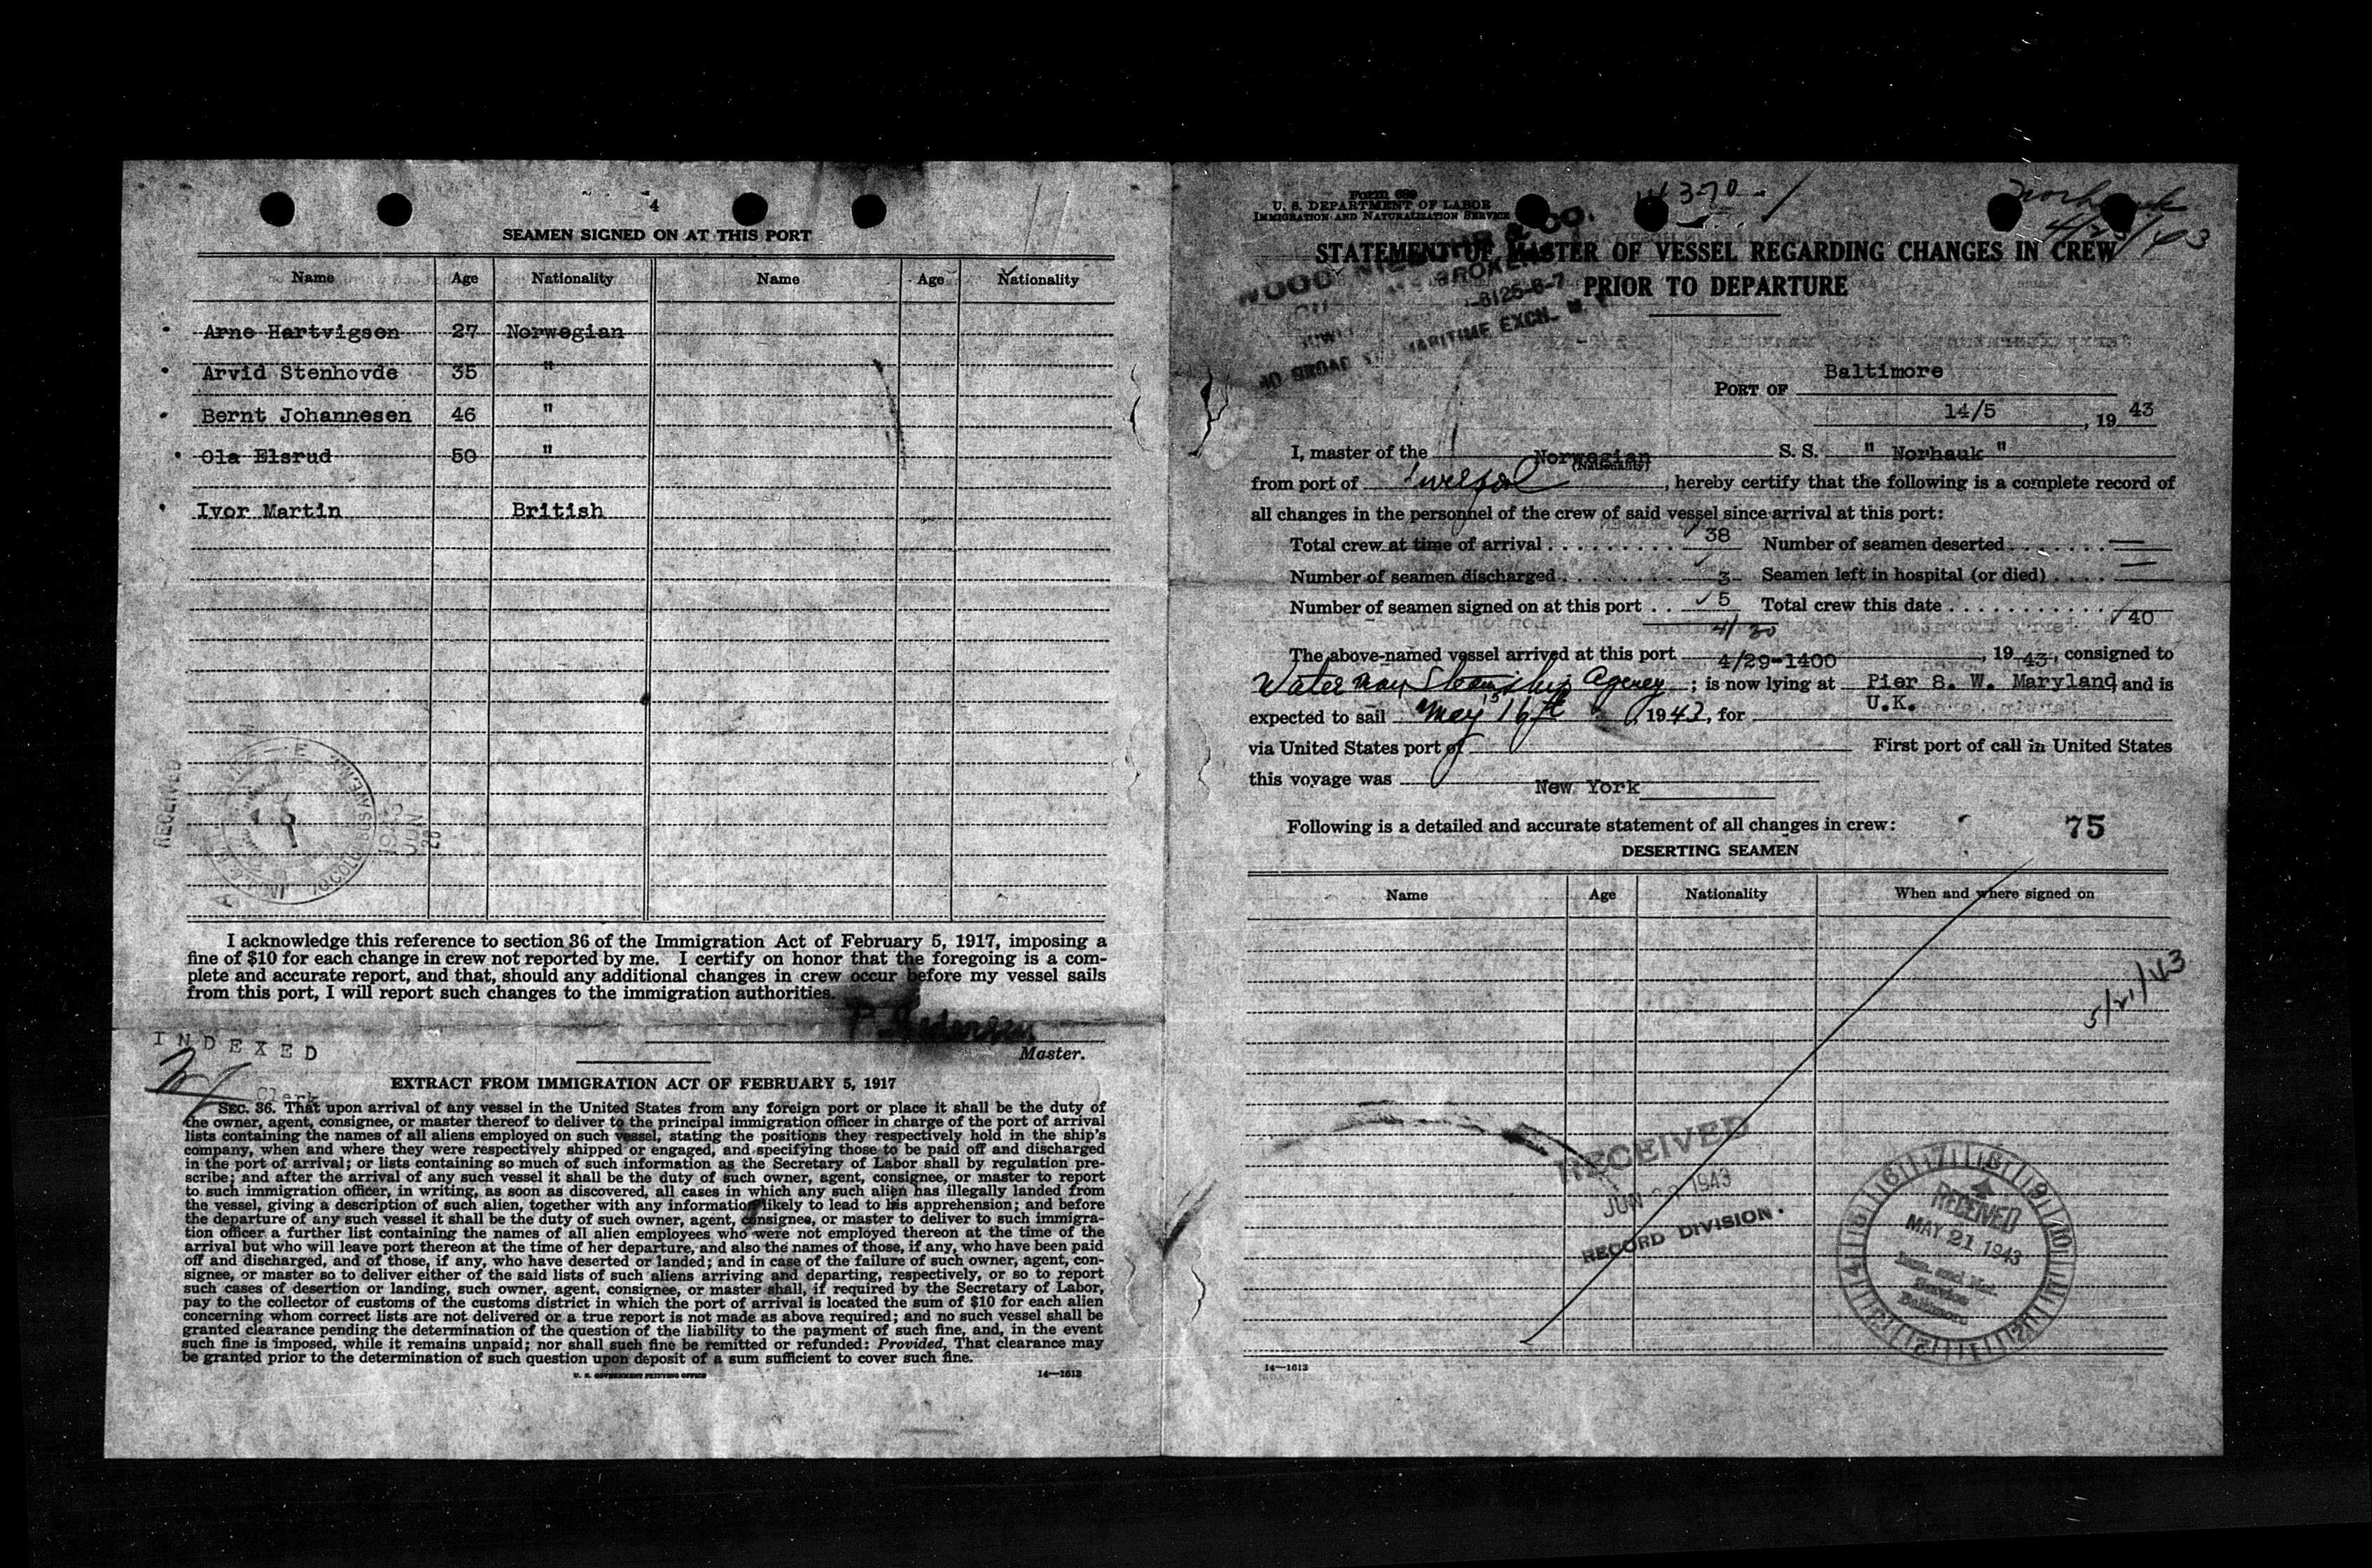 4
SEAMEN SIGNED ON AT THIS PORT
Name Age Nationality Name Age Nationality
Arne Hartvigsen 27 Norwegian
Arvid Stenhovde 35 "
Bernt Johannesen 46 "
Ola Elsrud 50 "
Ivor Martin British
RECEIVED
I acknowledge this reference to section 36 of the Immigration Act of February 5, 1917, imposing a
fine of $10 for each change in crew not reported by me. I certify on honor that the foregoing is a com-
plete and accurate report, and that, should any additional changes in crew occur before my vessel sails
from this port, I will report such changes to the immigration authorities.
P. Pedersen
Master.
INDEXED
Clerk
EXTRACT FROM IMMIGRATION ACT OF FEBRUARY 5, 1917
SEC. 36. That upon arrival of any vessel in the United States from any foreign port or place it shall be the duty of
the owner, agent, consignee, or master thereof to deliver to the principal immigration officer in charge of the port of arrival
lists containing the names of all aliens employed on such vessel, stating the positions they respectively hold in the ship's
company, when and where they were respectively shipped or engaged, and specifying those to be paid off and discharged
in the port of arrival; or lists containing so much of such information as the Secretary of Labor shall by regulation pre-
scribe; and after the arrival of any such vessel it shall be the duty of such owner, agent, consignee, or master to report
to such immigration officer, in writing, as soon as discovered, all cases in which any such alien has illegally landed from
the vessel, giving a description of such alien, together with any information likely to lead to his apprehension; and before
the departure of any such vessel it shall be the duty of such owner, agent, consignee, or master to deliver to such immigra-
tion officer a further list containing the names of all alien employees who were not employed thereon at the time of the
arrival but who will leave port thereon at the time of her departure, and also the names of those, if any, who have been paid
off and discharged, and of those, if any, who have deserted or landed; and in case of the failure of such owner, agent, con-
signee, or master so to deliver either of the said lists of such aliens arriving and departing, respectively, or so to report
such cases of desertion or landing, such owner, agent, consignee, or master shall, if required by the Secretary of Labor,
pay to the collector of customs of the customs district in which the port of arrival is located the sum of $10 for each alien
concerning whom correct lists are not delivered or a true report is not made as above required; and no such vessel shall be
granted clearance pending the determination of the question of the liability to the payment of such fine, and, in the event
such fine is imposed, while it remains unpaid; nor shall such fine be remitted or refunded: Provided, That clearance may
be granted prior to the determination of such question upon deposit of a sum sufficient to cover such fine.
U. S. GOVERNMENT PRINTING OFFICE 14—1613
Form 689
U. S. DEPARTMENT OF LABOR
IMMIGRATION AND NATURALIZATION SERVICE
Norhauk
4/29/43
STATEMENT OF MASTER OF VESSEL REGARDING CHANGES IN CREW
PRIOR TO DEPARTURE
WOOD & CO.
BROKERS
-8125-6-7
MARITIME EXCH.
BROAD
PORT OF Baltimore
14/5, 19 43
I, master of the Norwegian S. S. " Norhauk "
(Nationality)
from port of Liverpool, hereby certify that the following is a complete record of
all changes in the personnel of the crew of said vessel since arrival at this port:
Total crew at time of arrival 38 Number of seamen deserted —
Number of seamen discharged 3 Seamen left in hospital (or died) —
Number of seamen signed on at this port 5 Total crew this date 40
4/30
The above-named vessel arrived at this port 4/29-1400, 19 43, consigned to
Waterman Steamship Agency; is now lying at Pier 8. W. Maryland and is
expected to sail May 16th 1943, for U.K.
via United States port of First port of call in United States
this voyage was New York
Following is a detailed and accurate statement of all changes in crew: 75
DESERTING SEAMEN
Name Age Nationality When and where signed on
5/21/43
RECEIVED
JUN 1943
RECORD DIVISION.
RECEIVED
MAY 21 1943
Imm. and Nat.
Service
Baltimore
14—1613